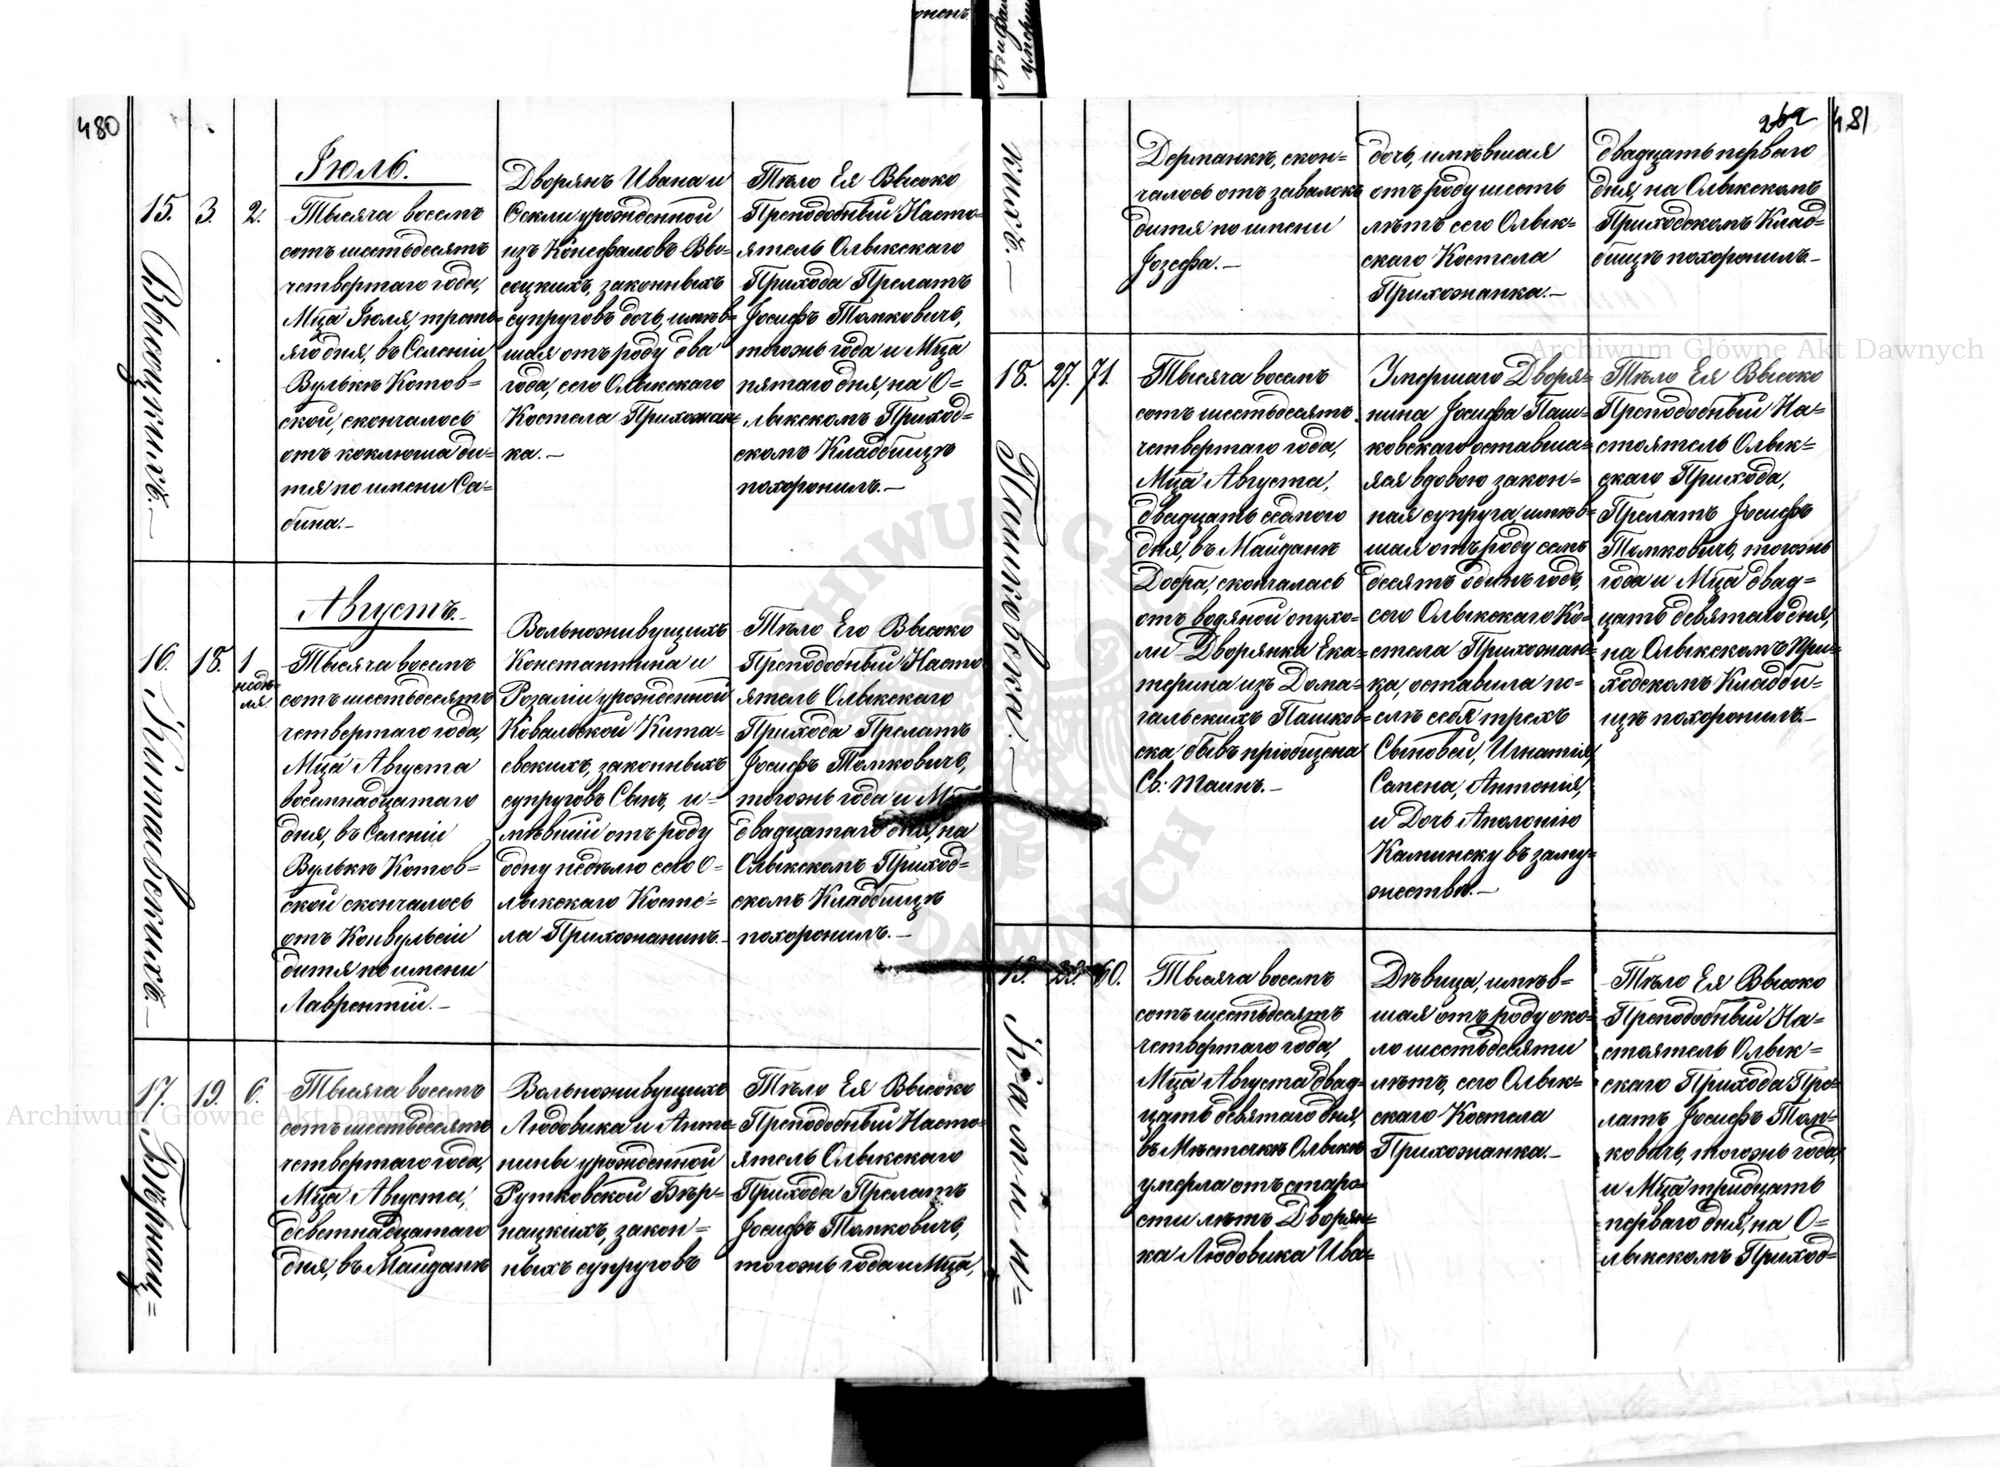 480
Іюль.
15.
3.
2.
Высоцкихъ.—
Тысяча восемь
сотъ шестьдесятъ
четвертаго года,
Мца Іюля, треть=
яго дня, въ Селеніи
Вулькѣ Котов=
ской, скончалось
отъ коклюша ди=
тя по имени Са=
бина.—
Дворянъ Ивана и
урожденной
изъ Вы=
соцкихъ, законныхъ
супруговъ дочь, имѣв=
шая отъ роду два
года, сего Олыкскаго
Костела Прихожан=
ка.—
Тѣло Ея Высоко
Преподобный Насто=
ятель Олыкскаго
Прихода Прелатъ
Іосифъ Томковичъ,
тогожъ года и Мца
пятаго дня, на О=
лыкскомъ Приход=
скомъ Кладбищѣ
похоронилъ.—
Августъ.
16.
18.
1
недѣ=
ля.
Китаевскихъ.—
Тысяча восемь
сотъ шестьдесятъ
четвертаго года,
Мца Августа
восемнадцатаго
дня, въ Селеніи
Вулькѣ Котов=
ской скончалось
отъ Конвульсіи
дитя по имени
Лаврентій.—
Вольноживущихъ
Константина и
Розаліи урожденной
Ковальской Кита=
евскихъ, законныхъ
супруговъ Сынъ, и=
мѣвшій отъ роду
одну недѣлю сего О=
лыкскаго Косте=
ла Прихожанинъ.—
Тѣло Его Высоко
Преподобный Насто=
ятель Олыкскаго
Прихода Прелатъ
Іосифъ Томковичъ,
тогожъ года и Мца
двадцатаго дня, на
Олыкскомъ Приход=
скомъ Кладбищѣ
похоронилъ.—
17.
19.
6.
Бѣрнац=
Тысяча восемь
сотъ шестьдесятъ
четвертаго года,
Мца Августа,
девятнадцатаго
дня, въ Майданѣ
Вольноживущихъ
Людовика и Анто=
нины урожденной
Рутковской Бѣр=
нацкихъ, закон=
ныхъ супруговъ
Тѣло Ея Высоко
Преподобный Насто=
ятель Олыкскаго
Прихода Прелатъ
Іосифъ Томковичъ,
тогожъ года и Мца,
481
кихъ.—
Дерманкѣ, скон=
чалось отъ завалокъ
дитя по имени
Іозефа.—
дочь, имѣвшая
отъ роду шесть
лѣтъ сего Олык=
скаго Костела
Прихожанка.—
двадцать перваго
дня, на Олыкскомъ
Приходскомъ Клад=
бищѣ похоронилъ.—
18.
27.
71.
Пашковска.—
Тысяча восемь
сотъ шестьдесятъ
четвертаго года,
Мца Августа,
двадцать седмого
дня, въ Майданѣ
Добра, скончалась
отъ водяной опухо=
ли Дворянка Ека=
терина изъ Дома=
гальскихъ Пашков=
ска, бывъ пріобщена
Св: Таинъ.—
Умершаго Дворя=
нина Іосифа Паш=
ковскаго оставша=
яся вдовою закон=
ная супруга имѣв=
шая отъ роду семь
десятъ одинъ годъ,
сего Олыкскаго Ко=
стела Прихожан=
ка, оставила по=
слѣ себя трехъ
Сыновей, Игнатія,
Антонія,
и Дочь Аполонію
Каминску въ заму=
жествѣ.—
Тѣло Ея Высоко
Преподобный На=
стоятель Олык=
скаго Прихода,
Прелатъ Іосифъ
Томковичъ, тогожъ
года и Мца двад=
цать девятаго дня,
на Олыкскомъ При=
ходскомъ Кладби=
щѣ похоронилъ.—
19.
29.
60.
Камин=
Тысяча восемь
сотъ шестьдесятъ
четвертаго года,
Мца Августа двад=
цать девятаго дня,
въ Мѣстечкѣ Олыкѣ
умерла отъ старо=
сти лѣтъ Дворян=
ка Людовика Ива=
Дѣвица, имѣв=
шая отъ роду око=
ло шестьдесяти
лѣтъ, сего Олык=
скаго Костела
Прихожанка.—
Тѣло Ея Высоко
Преподобный На=
стоятель Олык=
скаго Прихода Пре=
латъ Іосифъ Том=
ковичъ, тогожъ года,
и Мца тридцать
перваго дня, на О=
лыкскомъ Приход=
Archiwum Główne Akt Dawnych
Archiwum Główne Akt Dawnych